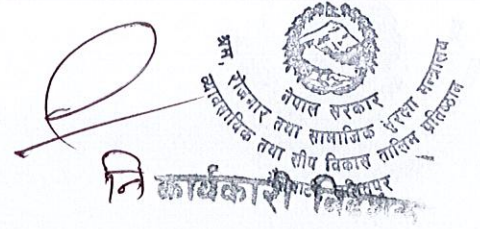 नेपाल सरकार
श्रम, रोजगार तथा सामाजिक सुरक्षा मन्त्रालय
व्यावसायिक तथा सीप विकास तालिम प्रतिष्ठान
नि कार्यकारी निर्देशक